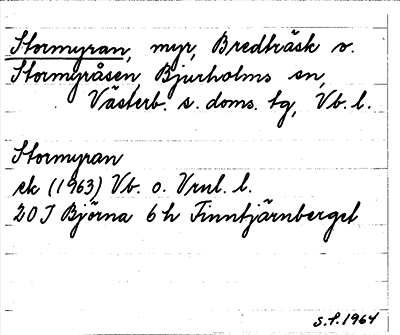 Stormyran, myr, Bredträsk o.
Stormyråsen, Bjurholms sn,
Västerb. s. doms. tg, Vb. l.
Stormyran
ek (1963) Vb. o. Vrnl. l.
20 J Björna 6 h Finntjärnberget
S.F. 1964